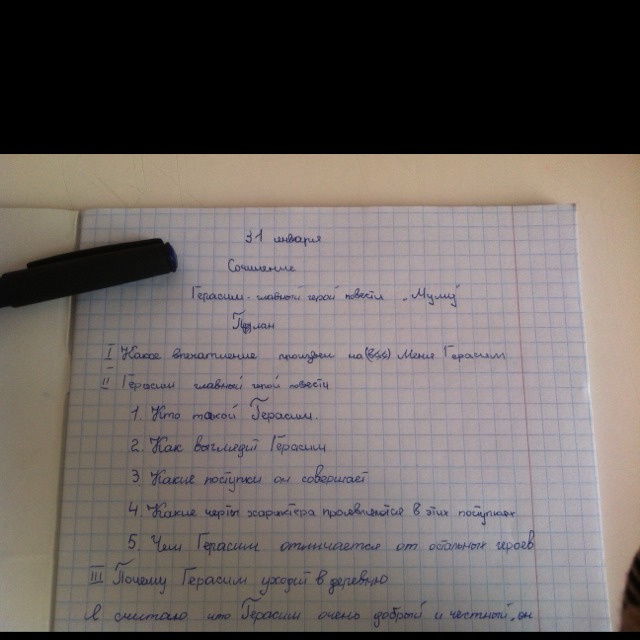 31 января
Сочинение
Герасим - главный герой повести „Муму"
План
I Какое впечатление на (ввв) Меня Герасим
II Герасим главный герой повести
1. Кто такой Герасим.
2. Как выглядит Герасим
3 Какие поступки он совершает
4. Какие черты характера проявляются в этих поступках
5. Чем Герасим отличается от остальных героев
III Почему Герасим уходит в деревню
Я считаю что Герасим очень добрый и честный, он